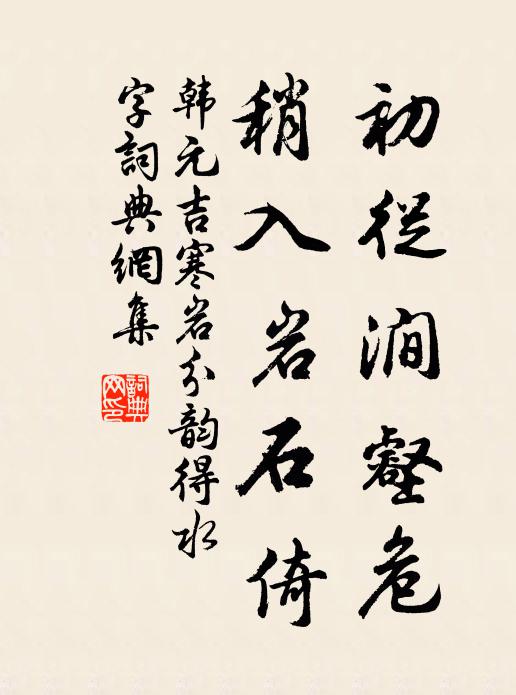 初從澗壑危
稍入岩石倚
韩元吉寒岩分韵得水
字詞典網集
詞典
网印